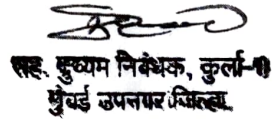 सह. दुय्यम निबंधक, कुर्ला-
मुंबई उपनगर जिल्हा